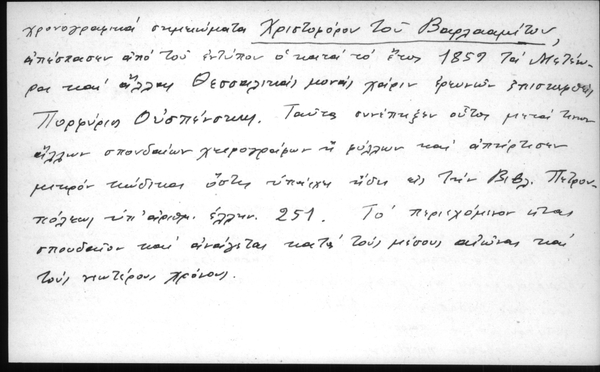 χρονογραφικά σημειώματα Χριστοφόρου τοῦ Βαρλααμίτου,
ἀπέσπασεν ἀπό τοῦ ἐντύπου ὁ κατά τό ἔτος 1859 τά Μετέω-
ρα καί ἄλλας Θεσσαλικάς μονάς χάριν ἐρευνῶν ἐπισκεφθείς
Πορφύριος Οὐσπένσκης. Ταῦτα συνέπηξεν οὗτος μετά τινων
ἄλλων σπουδαίων χειρογράφων φύλλων καί ἀπήρτισεν
μικρόν κώδικα ὅστις ὑπάρχει ἤδη εἰς τήν Βιβλ. Πετρου-
πόλεως ὑπ' ἀριθμ. ἑλλην. 251. Τό περιεχόμενον εἶναι
σπουδαῖον καί ἀνάγεται κατά τούς μέσους αἰῶνας καί
τούς νεωτέρους χρόνους.